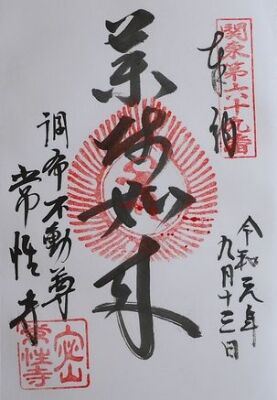 関東第六十九番
奉拝
令和元年
九月十三日
薬師如来
調布不動尊
常性寺
宓山
常性寺